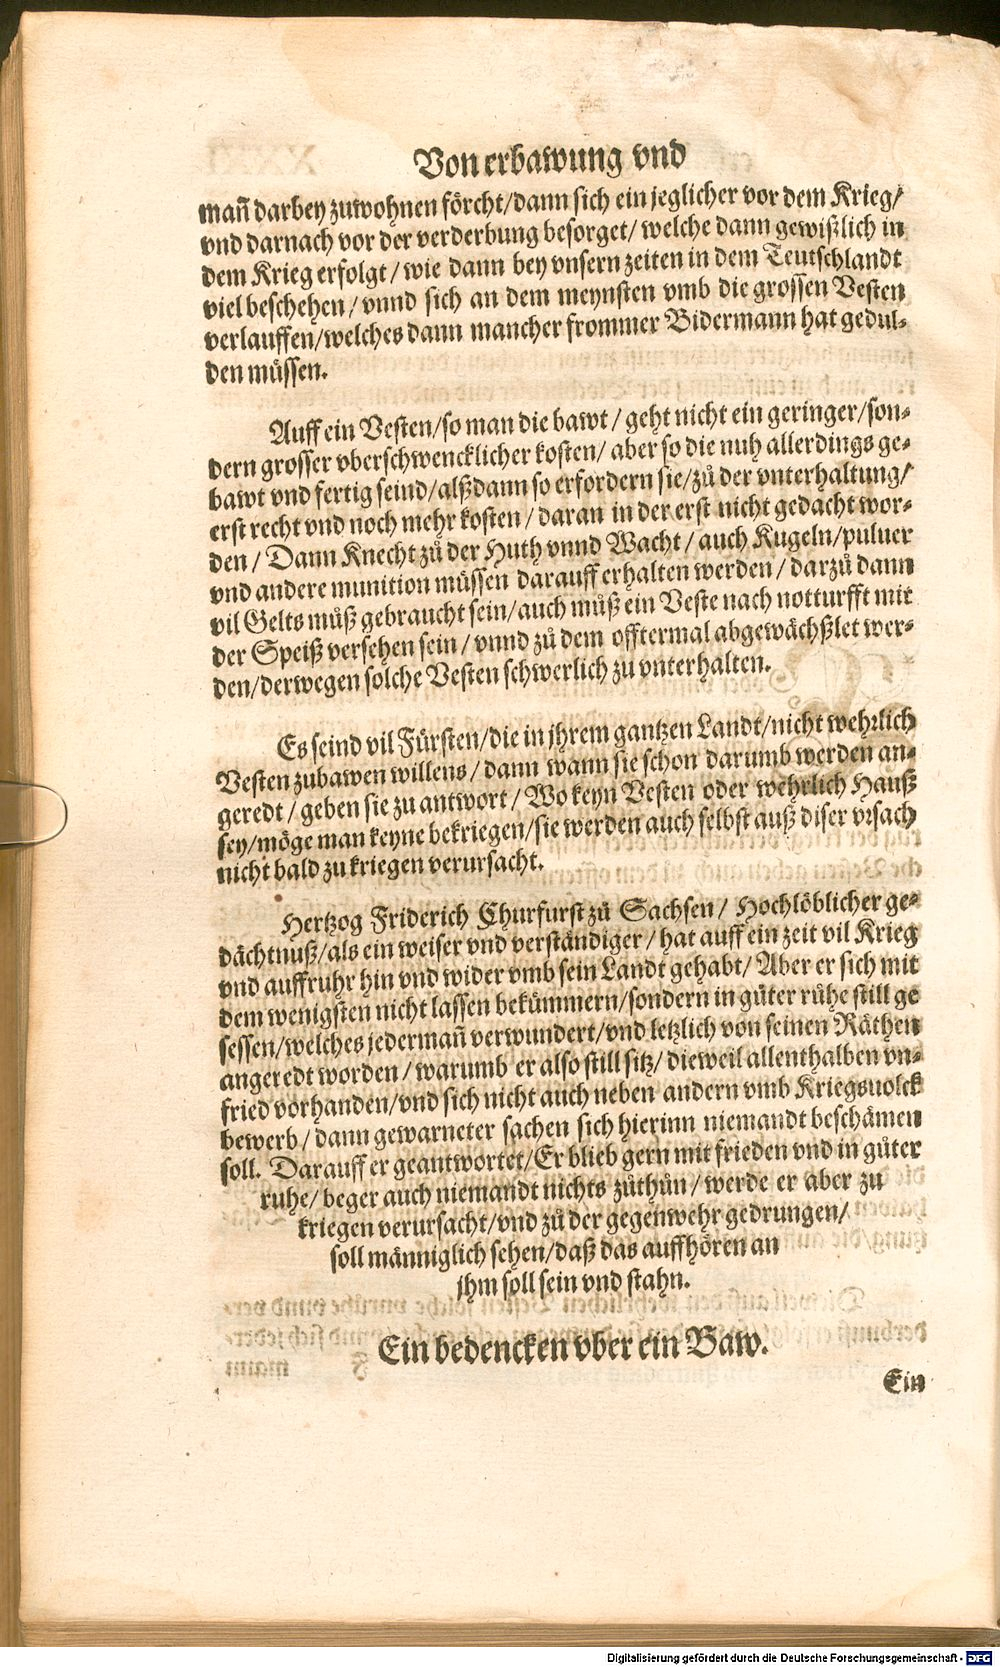 Von erbawung vnd
mañ darbey zuwohnen förcht/dann sich ein jeglicher vor dem Krieg/
vnd darnach vor der verderbung besorget/ welche dann gewißlich in
dem Krieg erfolgt / wie dann bey vnsern zeiten in dem Teutschlandt
viel beschehen / vnnd sich an dem meynsten vmb die grossen Vesten
verlauffen/welches dann mancher frommer Bidermann hat gedul-
den müssen.
Auff ein Vesten/so man die bawt / geht nicht ein geringer/son-
dern grosser vberschwencklicher kosten/ aber so die nuh allerdings ge-
bawt vnd fertig seind/alß dann so erfordern sie/zů der vnterhaltung/
erst recht vnd noch mehr kosten / daran in der erst nicht gedacht wor-
den / Dann Knecht zů der Huth vnnd Wacht / auch Kugeln/puluer
vnd andere munition müssen darauff erhalten werden / darzů dann
vil Gelts můß gebraucht sein/auch můß ein Veste nach notturfft mit
der Speiß versehen sein / vnnd zů dem offtermal abgewächßlet wer-
den/derwegen solche Vesten schwerlich zu vnterhalten.
Es seind vil Fürsten/die in jhrem gantzen Landt/nicht wehrlich
Vesten zubawen willens / dann wann sie schon darumb werden an-
geredt / geben sie zu antwort / Wo keyn Vesten oder wehrlich Hauß
sey/möge man keyne bekriegen/sie werden auch selbst auß diser vrsach
nicht bald zu kriegen verursacht.
Hertzog Friderich Churfurst zů Sachsen / Hochlöblicher ge-
dächtnuß/als ein weiser vnd verständiger / hat auff ein zeit vil Krieg
vnd auffruhr hin vnd wider vmb sein Landt gehabt/ Aber er sich mit
dem wenigsten nicht lassen bekümmern/sondern in gůter růhe still ge
sessen/welches jedermañ verwundert/vnd letzlich von seinen Räthen
angeredt worden / warumb er also still sitz/ dieweil allenthalben vn-
fried vorhanden/vnd sich nicht auch neben andern vmb Kriegsuolck
bewerb / dann gewarneter sachen sich hierinn niemandt beschämen
soll. Darauff er geantwortet/Er blieb gern mit frieden vnd in gůter
ruhe/ beger auch niemandt nichts zůthůn / werde er aber zu
kriegen verursacht/vnd zů der gegenwehr gedrungen/
soll männiglich sehen/daß das auffhören an
jhm soll sein vnd stahn.
Ein bedencken vber ein Baw.
Ein
Digitalisierung gefördert durch die Deutsche Forschungsgemeinschaft - DFG